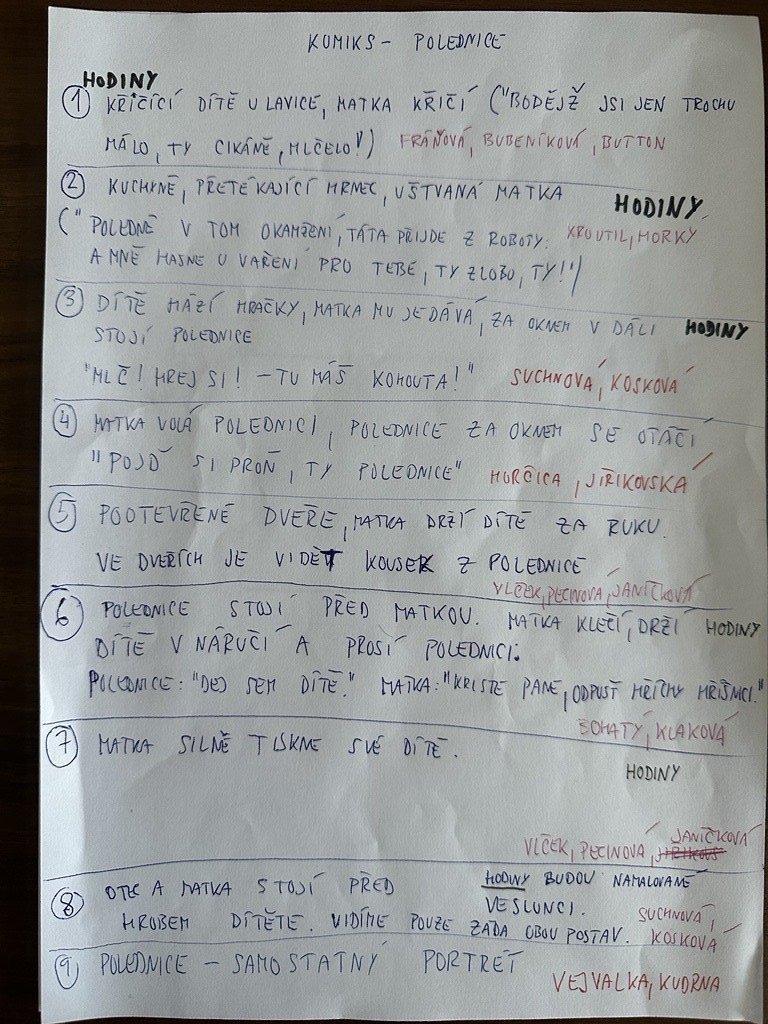 KOMIKS - POLEDNICE
HODINY
① KŘIČÍCÍ DÍTĚ U LAVICE, MATKA KŘIČÍ ("BODĚJŽ JSI JEN TROCHU
MÁLO, TY CIKÁNĚ, MLČELO!") FRÁŇOVÁ, BUBENÍKOVÁ, BUTTON
② KUCHYNĚ, PŘETÉKAJÍCÍ HRNEC, UŠTVANÁ MATKA HODINY
("POLEDNE V TOM OKAMŽENÍ, TÁTA PŘIJDE Z ROBOTY: KROUTIL, HORKY
A MNĚ HASNE U VAŘENÍ PRO TEBE, TY ZLOBO, TY!")
③ DÍTĚ HÁZÍ HRAČKY, MATKA MU JE DÁVÁ, ZA OKNEM V DÁLI HODINY
STOJÍ POLEDNICE
"MLČ! HREJ SI! - TU MÁŠ KOHOUTA!" SUCHNOVÁ, KOSKOVÁ
④ MATKA VOLÁ POLEDNICI, POLEDNICE ZA OKNEM SE OTÁČÍ
"POJĎ SI PROŇ, TY POLEDNICE" HORČICA, JIŘIKOVSKÁ
⑤ POOTEVŘENÉ DVEŘE, MATKA DRŽÍ DÍTĚ ZA RUKU.
VE DVEŘÍCH JE VIDĚT KOUSEK Z POLEDNICE
VLČEK, PECINOVÁ, JANÍČKOVÁ
⑥ POLEDNICE STOJÍ PŘED MATKOU. MATKA KLEČÍ, DRŽÍ HODINY
DÍTĚ V NÁRUČÍ A PROSÍ POLEDNICI.
POLEDNICE: "DEJ SEM DÍTĚ." MATKA: "KRISTE PANE, ODPUSŤ HŘÍCHY HŘÍŠNICI."
BOHATÝ, KLAKOVÁ
⑦ MATKA SILNĚ TISKNE SVÉ DÍTĚ.
HODINY
JANÍČKOVÁ
VLČEK, PECINOVÁ,
⑧ OTEC A MATKA STOJÍ PŘED HODINY BUDOU NAMALOVANÉ
VE SLUNCI.
HROBEM DÍTĚTE. VIDÍME POUZE ZÁDA OBOU POSTAV. SUCHNOVÁ, KOSKOVÁ
⑨ POLEDNICE - SAMOSTATNÝ PORTRÉT
VEJVALKA, KUDRNA